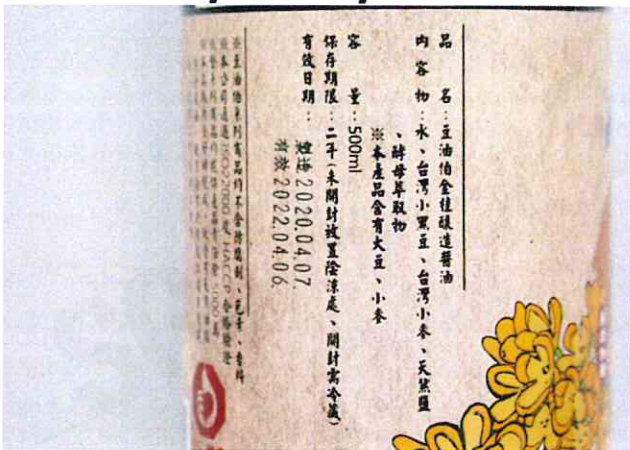 品名：豆油伯金桂釀造醬油
內容物：水、台灣小黑豆、台灣小麥、天然鹽
、酵母萃取物
※本產品含有大豆、小麥
容量：500ml
保存期限：二年(未開封放置陰涼處、開封需冷藏)
有效日期：
製造 2020.04.07
有效 2022.04.06
※豆油伯系列商品均不含防腐劑、色素、香料